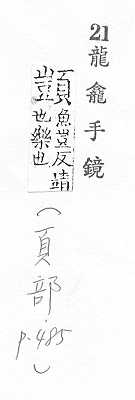 21 龍龕手鏡
顗魚豈反靖
也樂也
(頁部 p.485)